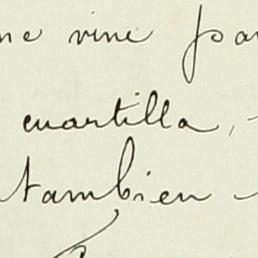 me vine
cuartilla,
tambien